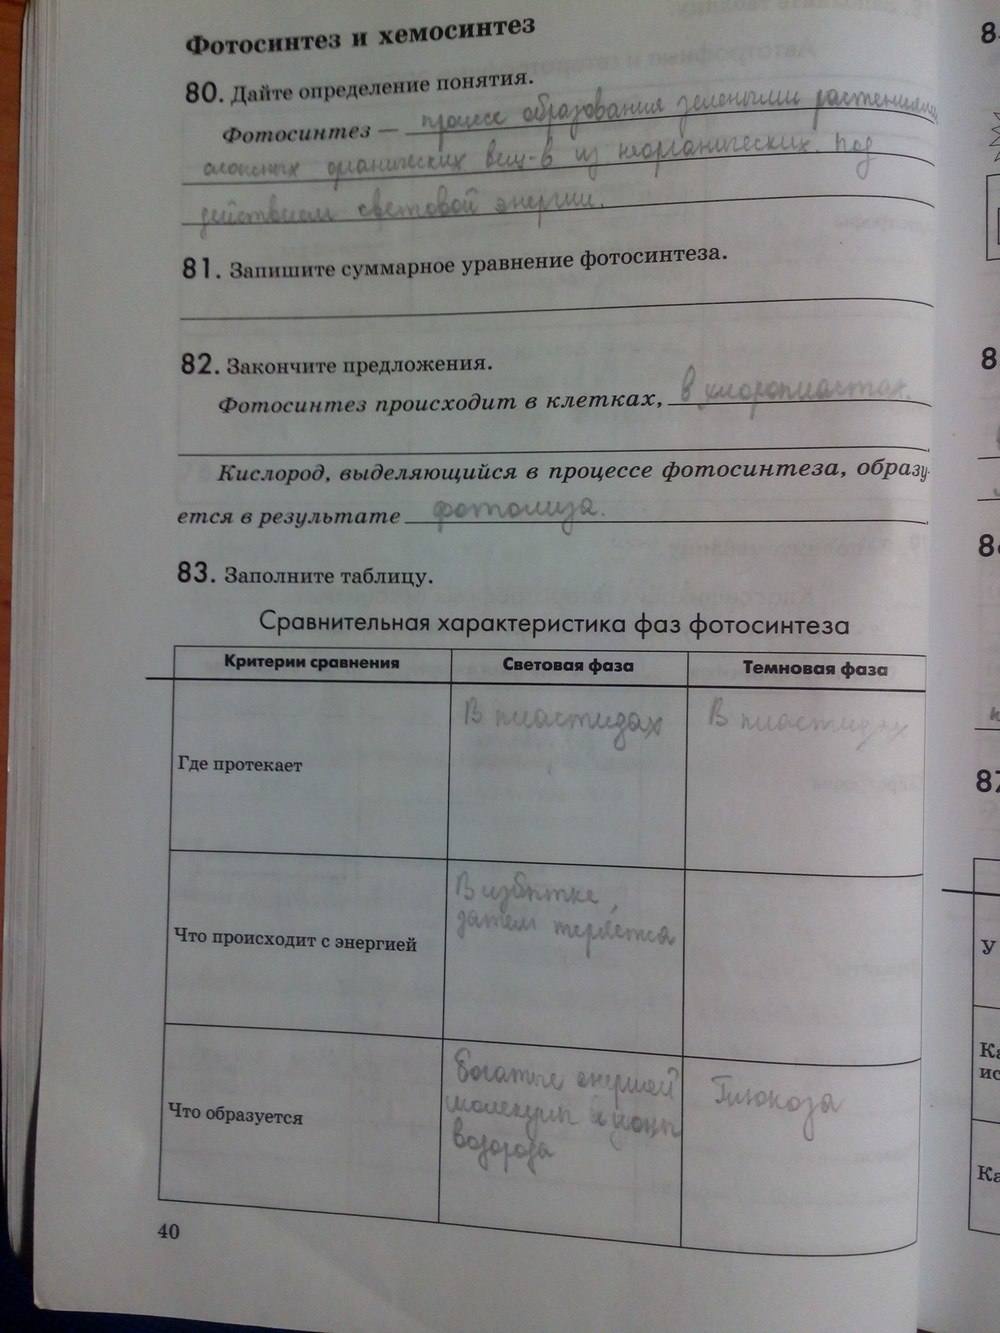 Фотосинтез и хемосинтез
80. Дайте определение понятия.
Фотосинтез — процесс образования зелеными растениями
сложных органических вещ-в из неорганических под
действием световой энергии.
81. Запишите суммарное уравнение фотосинтеза.
82. Закончите предложения.
Фотосинтез происходит в клетках, в хлоропластах.
Кислород, выделяющийся в процессе фотосинтеза, образу-
ется в результате фотолиза.
83. Заполните таблицу.
Сравнительная характеристика фаз фотосинтеза
Критерии сравнения Световая фаза Темновая фаза
Где протекает
В пластидах
В пластидах
Что происходит с энергией
В избытке,
затем теряется
Что образуется
Богатые энергией
молекулы и ионы
водорода
Глюкоза
40
8
8
87
У
Ка
ис
Ка